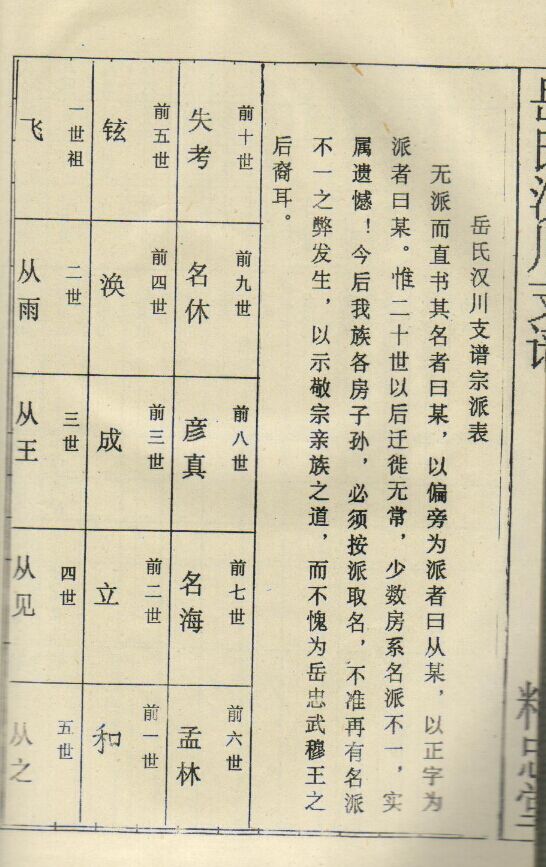 岳氏汉川支谱
精忠堂
岳氏汉川支谱宗派表
无派而直书其名者曰某，以偏旁为派者曰从某，以正字为
派者曰某。惟二十世以后迁徙无常，少数房系名派不一，实
属遗憾！今后我族各房子孙，必须按派取名，不准再有名派
不一之弊发生，以示敬宗亲族之道，而不愧为岳忠武穆王之
后裔耳。
前十世 失考
前九世 名休
前八世 彦真
前七世 名海
前六世 孟林
前五世 铉
前四世 涣
前三世 成
前二世 立
前一世 和
一世祖 飞
二世 从雨
三世 从王
四世 从见
五世 从之